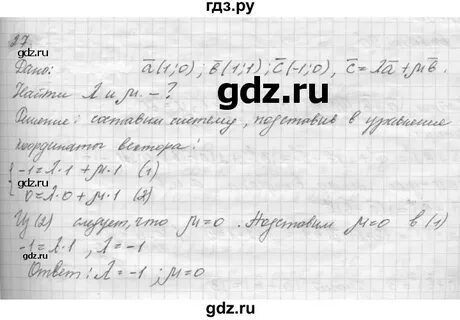 гдз.ру
27
Дано: a̅(1;0); b̅(1;1); c̅(-1;0), c̅=λa̅+μb̅.
Найти λ и μ. -?
гдз.ру
Решение: составим систему, подставив в уравнение
координаты вектора:
{ -1=λ·1+μ·1 (1)
0=λ·0+μ·1 (2)
Из (2) следует, что μ=0. Подставим μ=0 в (1)
-1=λ·1, λ=-1
Ответ: λ=-1; μ=0
гдз.ру